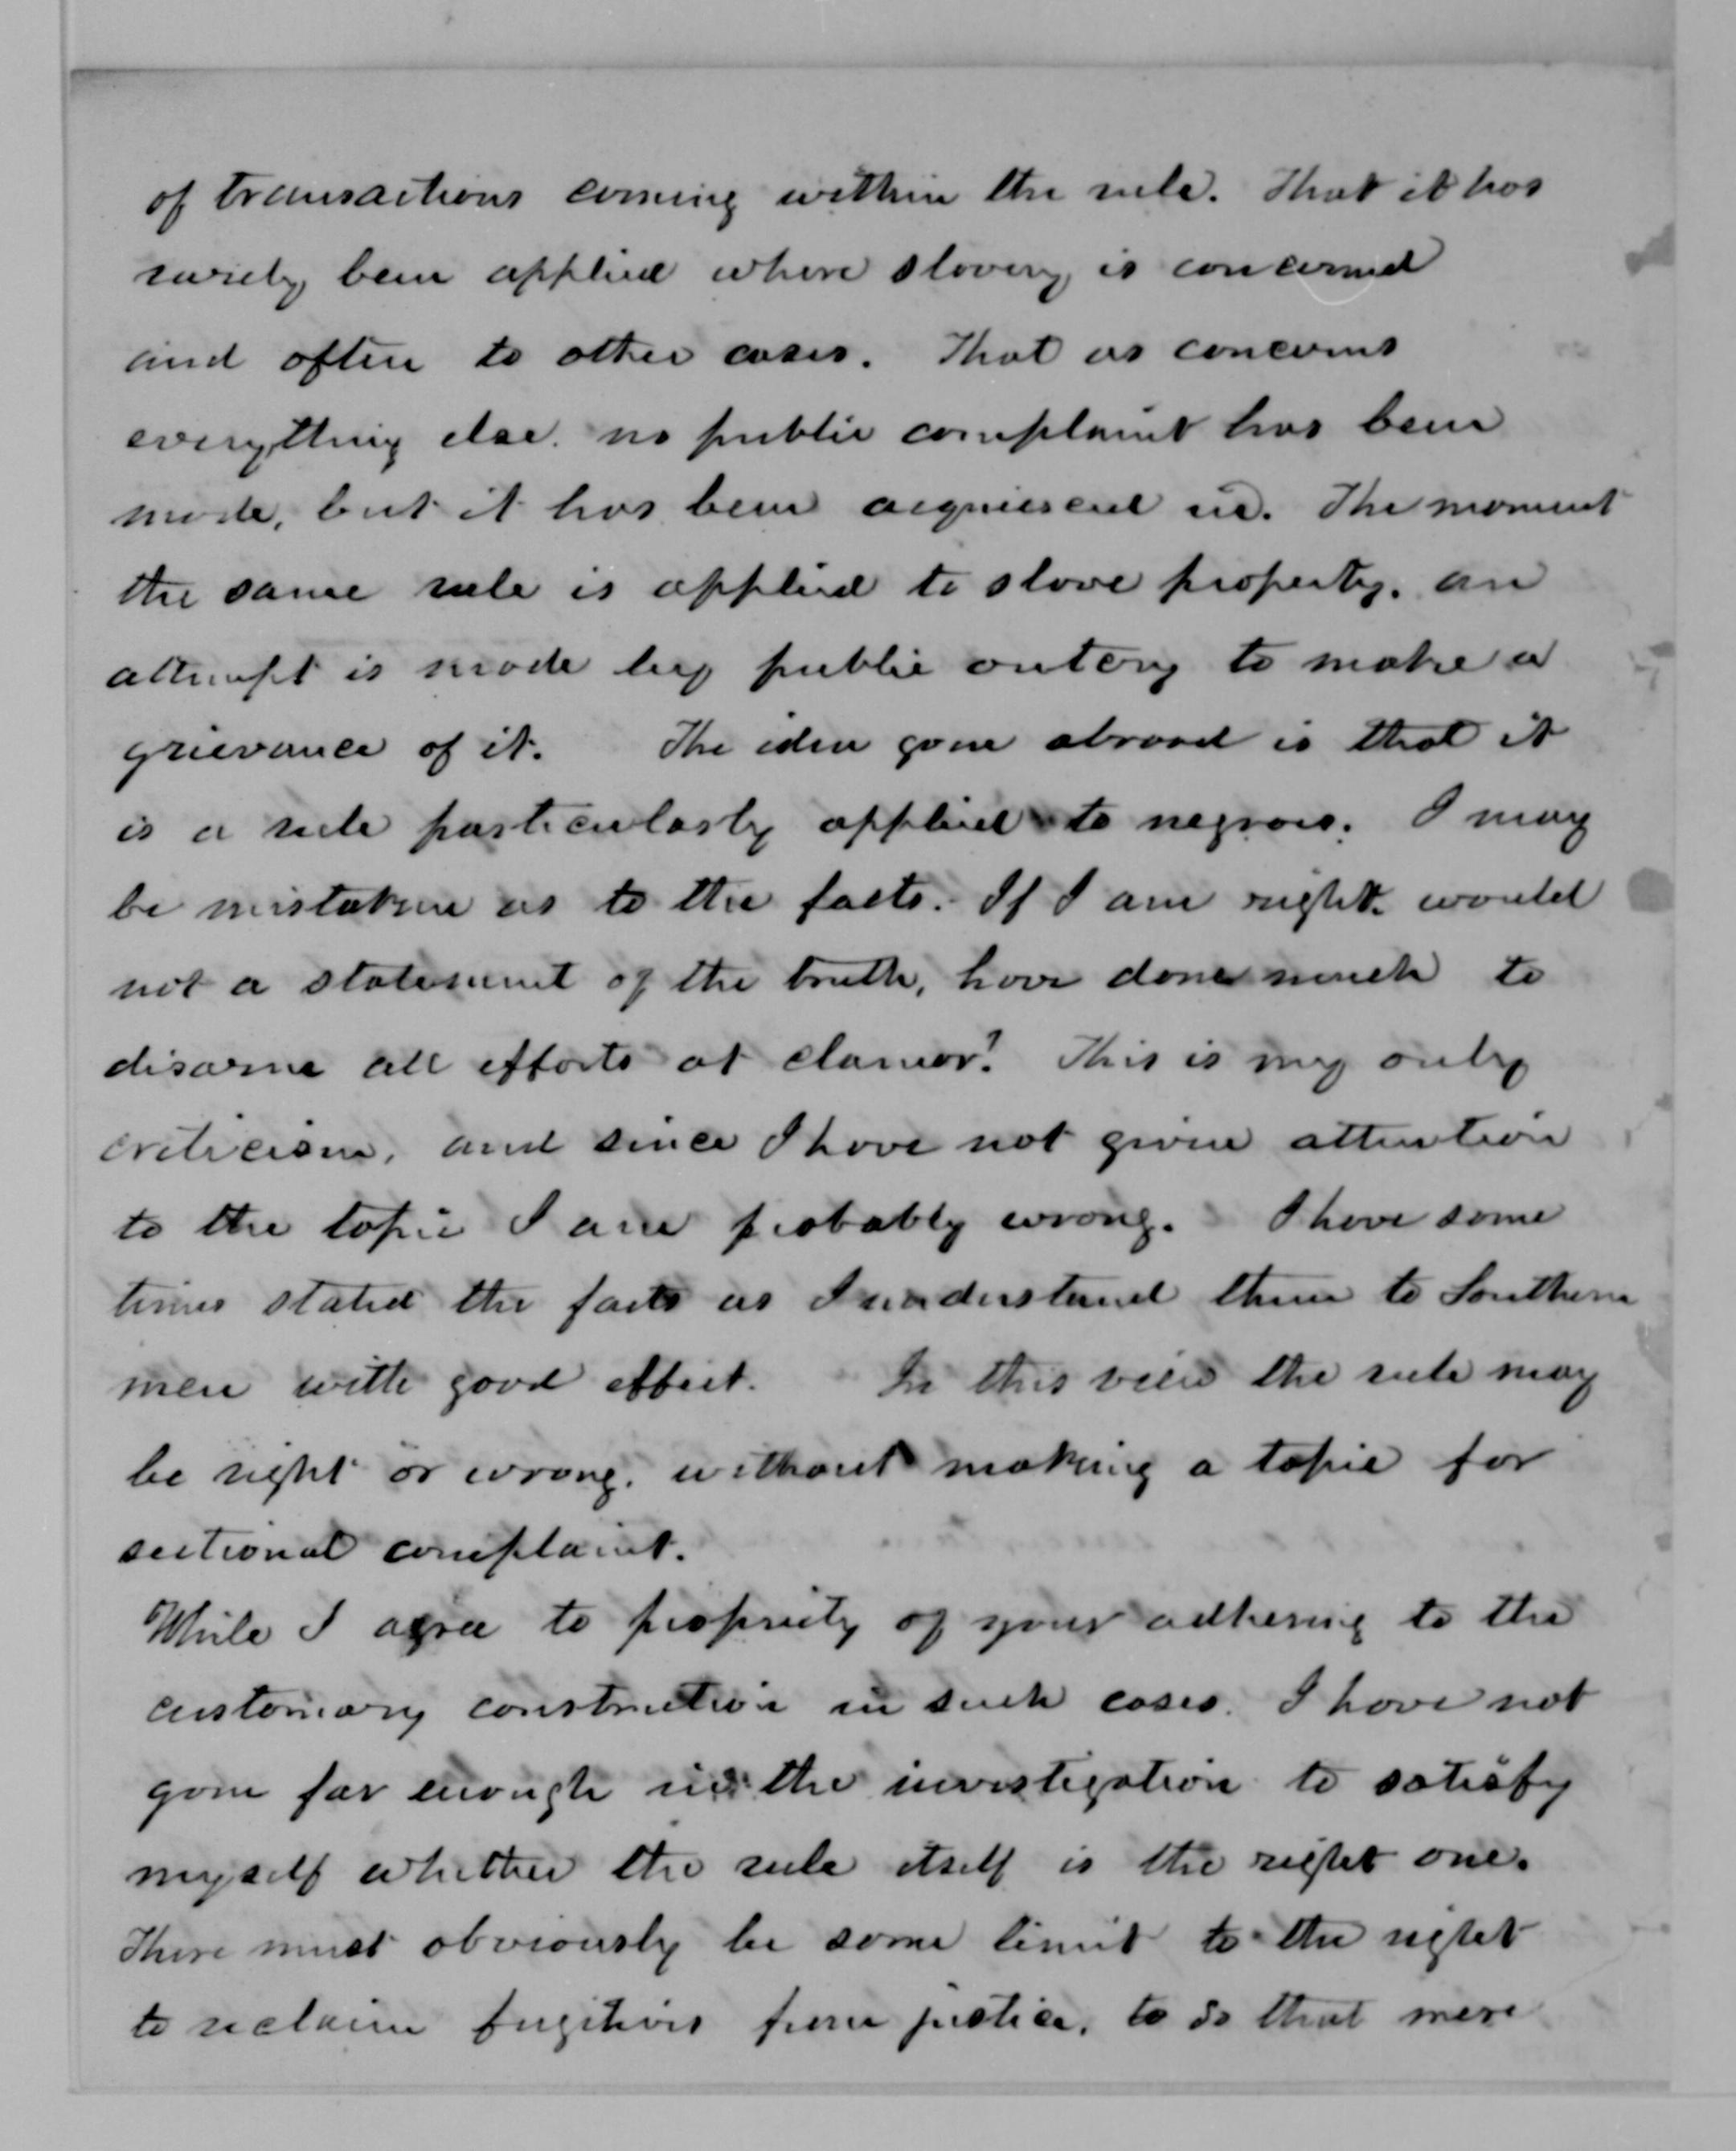 of transactions coming within the rule. That it has
rarely been applied where slavery is concerned
and often to other cases. That as concerns
everything else. no public complaint has been
made, but it has been acquiesced in. The moment
the same rule is applied to slave property. an
attempt is made by public outcry to make a
grievance of it. The idea gone abroad is that it
is a rule particularly applied to negroes. I may
be mistaken as to the facts. If I am right. would
not a statement of the truth, have done much to
disarm all efforts at clamor? This is my only
criticism, and since I have not given attention
to the topic I am probably wrong. I have some
times stated the facts as I understand them to Southern
men with good effect. In this view the rule may
be right or wrong. without making a topic for
sectional complaint.
While I agree to propriety of your adhering to the
customary construction in such cases. I have not
gone far enough in the investigation to satisfy
myself whether the rule itself is the right one.
There must obviously be some limit to the right
to reclaim fugitives from justice, to so that mere